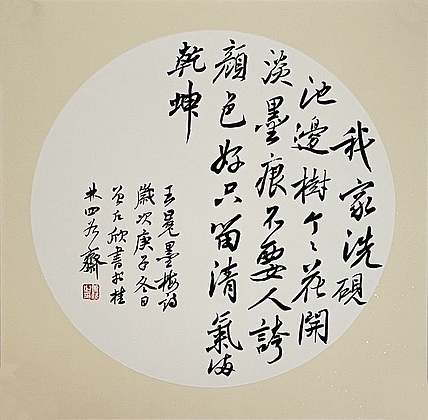 我家洗硯
池邊樹个々花開
淡墨痕不要人誇
顏色好只留清氣滿
乾坤
王冕墨梅詩
歲次庚子冬日
曾凡欣書於桂
林四为齋